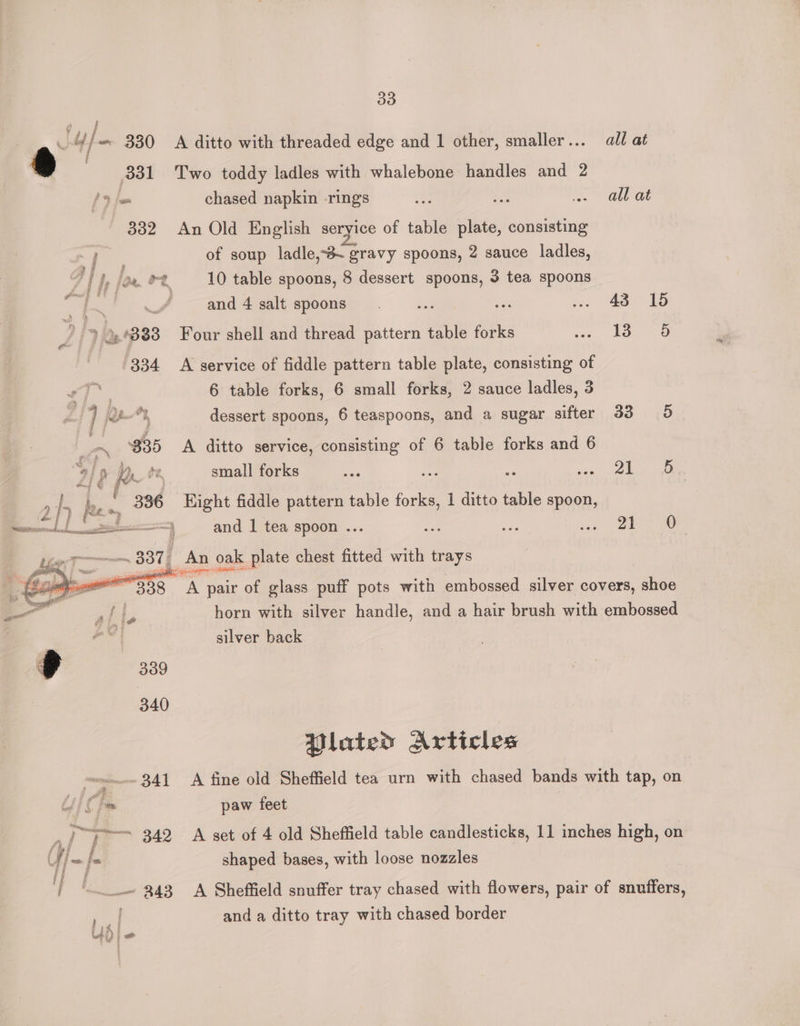 33
330 A ditto with threaded edge and 1 other, smaller... all at
331 Two toddy ladles with whalebone handles and 2
chased napkin rings ... ... ... all at
332 An Old English service of table plate, consisting
of soup ladle, 3 gravy spoons, 2 sauce ladles,
10 table spoons, 8 dessert spoons, 3 tea spoons
and 4 salt spoons ... ... ... 43 15
333 Four shell and thread pattern table forks ... 13 5
334 A service of fiddle pattern table plate, consisting of
6 table forks, 6 small forks, 2 sauce ladles, 3
dessert spoons, 6 teaspoons, and a sugar sifter 33 5
335 A ditto service, consisting of 6 table forks and 6
small forks ... ... ... ... 21 5
336 Eight fiddle pattern table forks, 1 ditto table spoon,
and 1 tea spoon ... ... ... ... 21 0
337 An oak plate chest fitted with trays
338 A pair of glass puff pots with embossed silver covers, shoe
horn with silver handle, and a hair brush with embossed
silver back
339
340
Plated Articles
341 A fine old Sheffield tea urn with chased bands with tap, on
paw feet
342 A set of 4 old Sheffield table candlesticks, 11 inches high, on
shaped bases, with loose nozzles
343 A Sheffield snuffer tray chased with flowers, pair of snuffers,
and a ditto tray with chased border